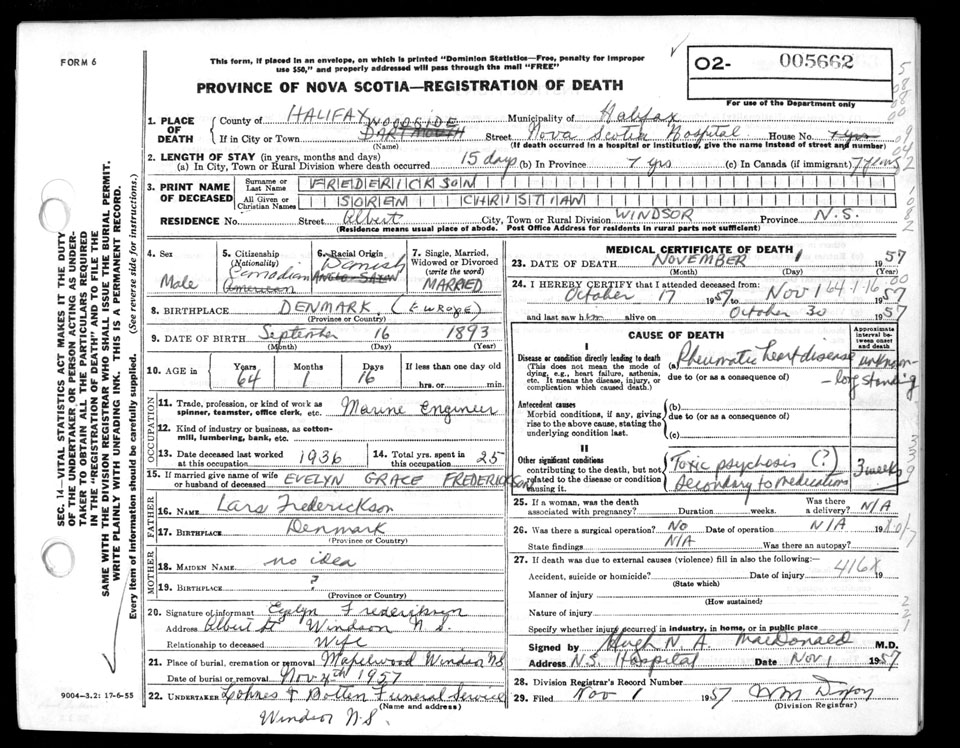 FORM 6
This form, if placed in an envelope, on which is printed "Dominion Statistics—Free, penalty for improper
use $50," and properly addressed will pass through the mail "FREE"
O2- 005662
For use of the Department only
PROVINCE OF NOVA SCOTIA—REGISTRATION OF DEATH
1. PLACE OF DEATH
County of HALIFAX Municipality of Halifax
WOODSIDE
If in City or Town DARTMOUTH Street Nova Scotia Hospital House No. 7 yrs
(Name) (If death occurred in a hospital or institution, give the name instead of street and number)
2. LENGTH OF STAY (in years, months and days)
(a) In City, Town or Rural Division where death occurred 15 days (b) In Province 7 yrs (c) In Canada (if immigrant) 7 years
3. PRINT NAME OF DECEASED
Surname or Last Name FREDERICKSON
All Given or Christian Names SOREN CHRISTIAN
RESIDENCE No. Street Albert City, Town or Rural Division WINDSOR Province N.S.
(Residence means usual place of abode. Post Office Address for residents in rural parts not sufficient)
4. Sex
Male
5. Citizenship
(Nationality)
Canadian
American
6. Racial Origin
Danish
ANGLO-SAXON
7. Single, Married,
Widowed or Divorced
(write the word)
MARRIED
8. BIRTHPLACE DENMARK (EUROPE)
(Province or Country)
9. DATE OF BIRTH September 16 1893
(Month) (Day) (Year)
10. AGE in Years Months Days If less than one day old
64 1 16 hrs. or min.
OCCUPATION
11. Trade, profession, or kind of work as
spinner, teamster, office clerk, etc. Marine Engineer
12. Kind of industry or business, as cotton-
mill, lumbering, bank, etc.
13. Date deceased last worked
at this occupation 1936
14. Total yrs. spent in
this occupation 25
15. If married give name of wife
or husband of deceased EVELYN GRACE FREDERICKSON
FATHER
16. NAME Lars Frederickson
17. BIRTHPLACE Denmark
(Province or Country)
MOTHER
18. MAIDEN NAME no idea
19. BIRTHPLACE ?
(Province or Country)
20. Signature of informant Evelyn Frederickson
Address Albert St Windsor N.S.
Relationship to deceased Wife
21. Place of burial, cremation or removal Mapelwood Windsor NS
Date of burial or removal Nov 4th 1957
22. UNDERTAKER Lohnes & Bolten Funeral Service
(Name and address)
Windsor N.S.
MEDICAL CERTIFICATE OF DEATH
23. DATE OF DEATH NOVEMBER 1 1957
(Month) (Day) (Year)
24. I HEREBY CERTIFY that I attended deceased from:
October 17 1957 to Nov 1 1957
64-1-16
and last saw him alive on October 30 1957
CAUSE OF DEATH
Approximate interval between onset and death
I
Disease or condition directly leading to death
(This does not mean the mode of
dying, e.g., heart failure, asthenia,
etc. It means the disease, injury, or
complication which caused death.)
(a) Rheumatic heart disease unknown
due to (or as a consequence of) — long standing
Antecedent causes
Morbid conditions, if any, giving
rise to the above cause, stating the
underlying condition last.
(b)
due to (or as a consequence of)
(c)
II
Other significant conditions
contributing to the death, but not
related to the disease or condition
causing it.
Toxic psychosis (?) 3 weeks
Secondary to medication
25. If a woman, was the death
associated with pregnancy? Duration weeks. Was there a delivery? N/A
26. Was there a surgical operation? No Date of operation N/A 19
State findings N/A Was there an autopsy?
27. If death was due to external causes (violence) fill in also the following:—
416X
Accident, suicide or homicide? Date of injury 19
(State which)
Manner of injury
(How sustained)
Nature of injury
Specify whether injury occurred in industry, in home, or in public place
Signed by Hugh N A MacDonald M.D.
Address N.S. Hospital Date Nov 1 1957
28. Division Registrar's Record Number
29. Filed Nov 1 1957
(Division Registrar)
SEC. 14—VITAL STATISTICS ACT MAKES IT THE DUTY
OF THE UNDERTAKER OR PERSON ACTING AS UNDER-
TAKER TO OBTAIN ALL THE PARTICULARS REQUIRED
IN THE "REGISTRATION OF DEATH" AND TO FILE THE
SAME WITH THE DIVISION REGISTRAR WHO SHALL ISSUE THE BURIAL PERMIT.
WRITE PLAINLY WITH UNFADING INK. THIS IS A PERMANENT RECORD.
Every item of information should be carefully supplied. (See reverse side for instructions.)
9004—3.2: 17-6-55